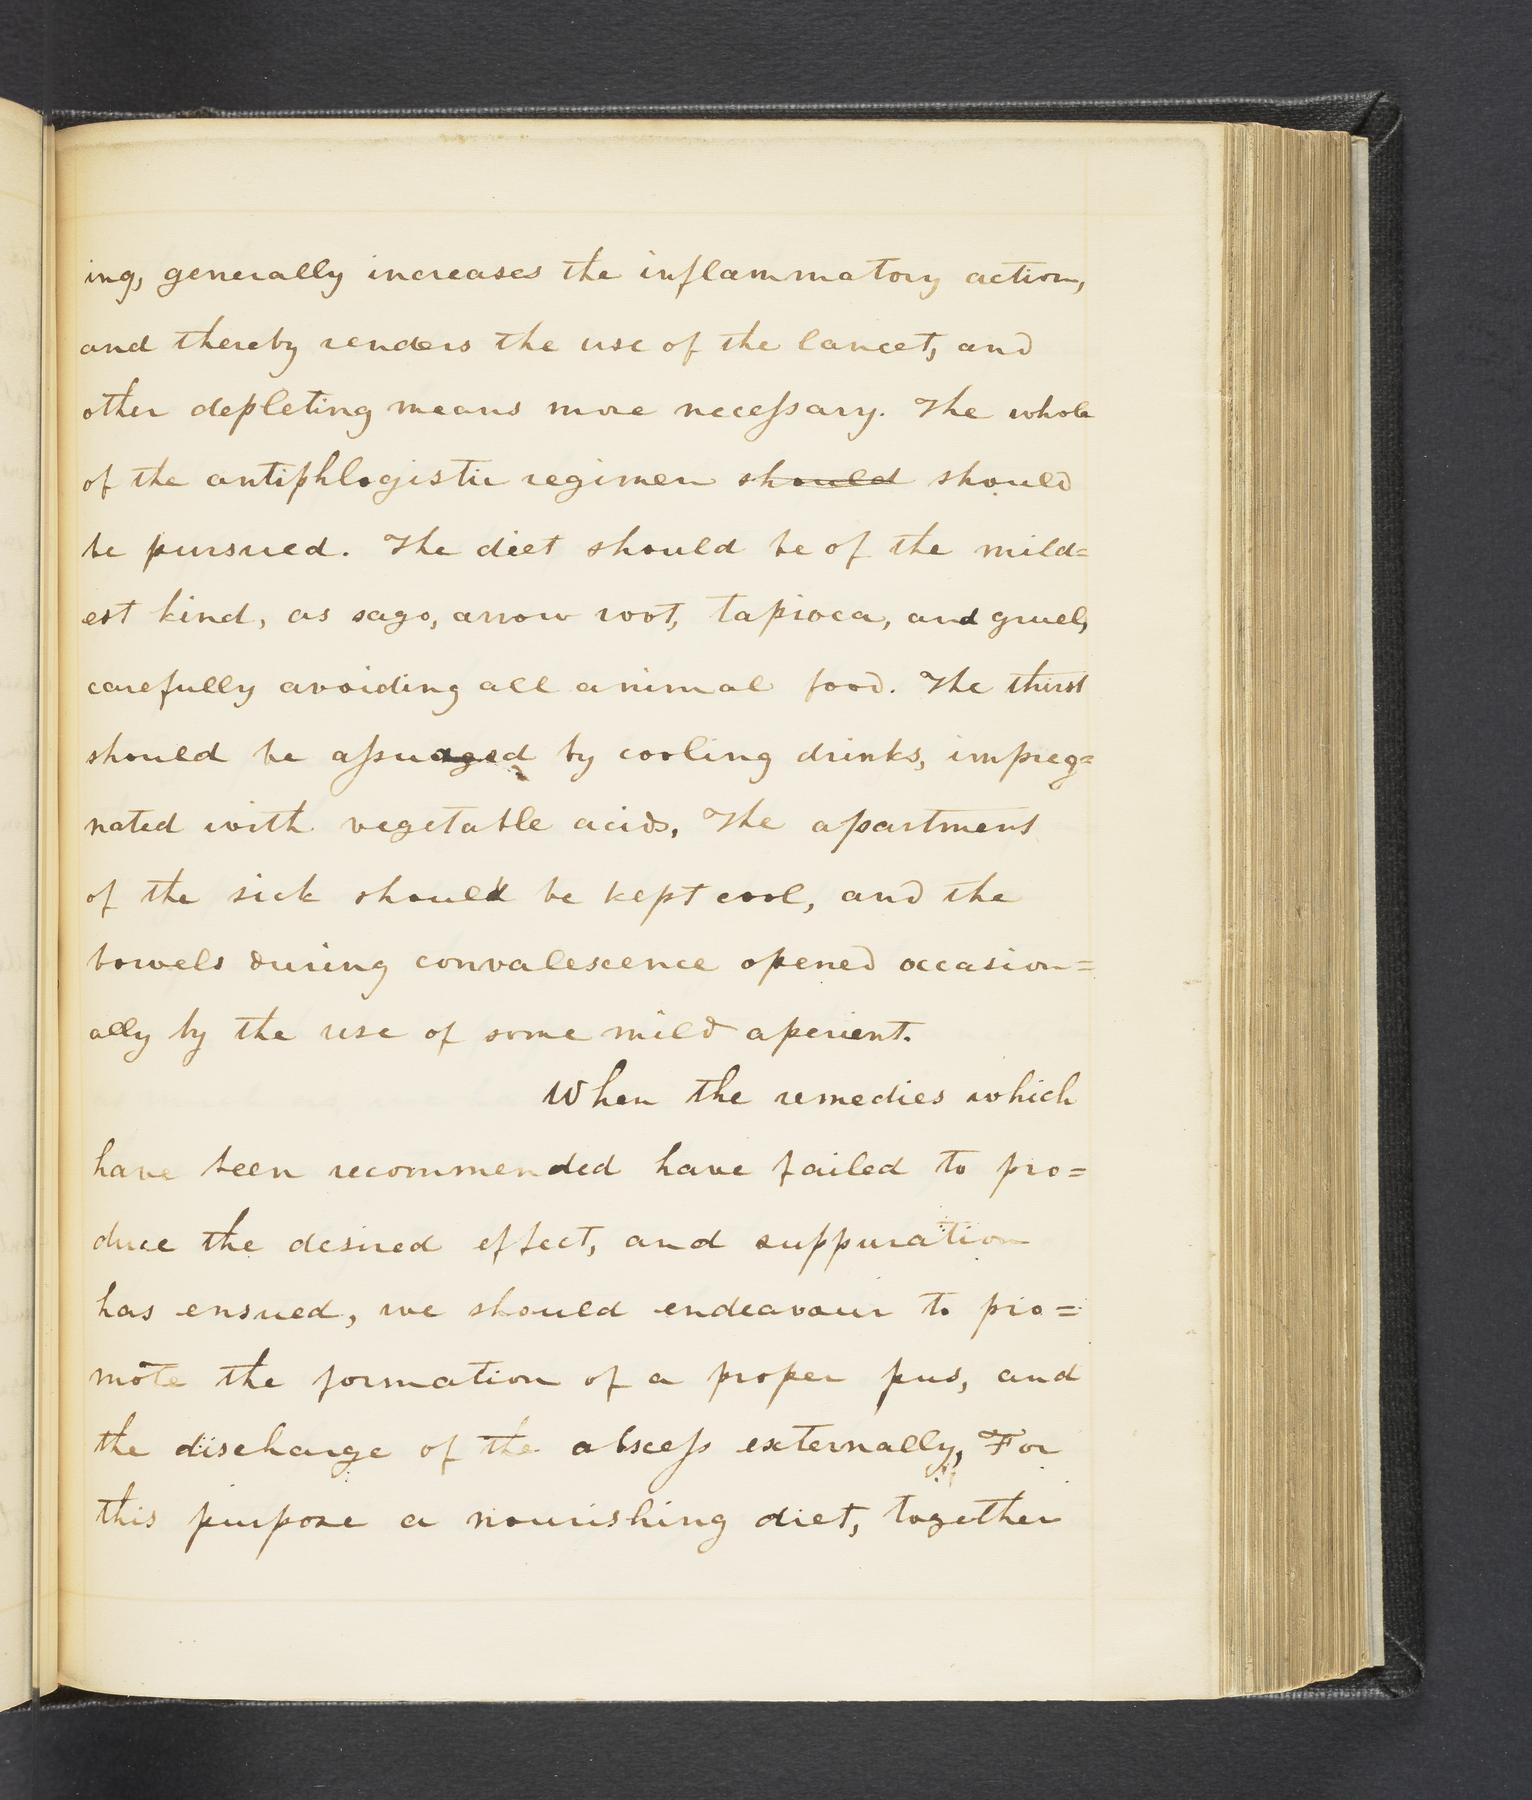 ing, generally increases the inflammatory action,
and thereby renders the use of the lancet, and
other depleting means more necessary. The whole
of the antiphlogistic regimen should should
be pursued. The diet should be of the mild=
est kind, as sago, arrow root, tapioca, and gruel,
carefully avoiding all animal food. The thirst
should be assuaged by cooling drinks, impreg=
nated with vegetable acids. The apartment
of the sick should be kept cool, and the
bowels during convalescence opened occasion=
ally by the use of some mild aperient.
When the remedies which
have been recommended have failed to pro=
duce the desired effect, and suppuration
has ensued, we should endeavour to pro=
mote the formation of a proper pus, and
the discharge of the abscess externally, For
this purpose a nourishing diet, together